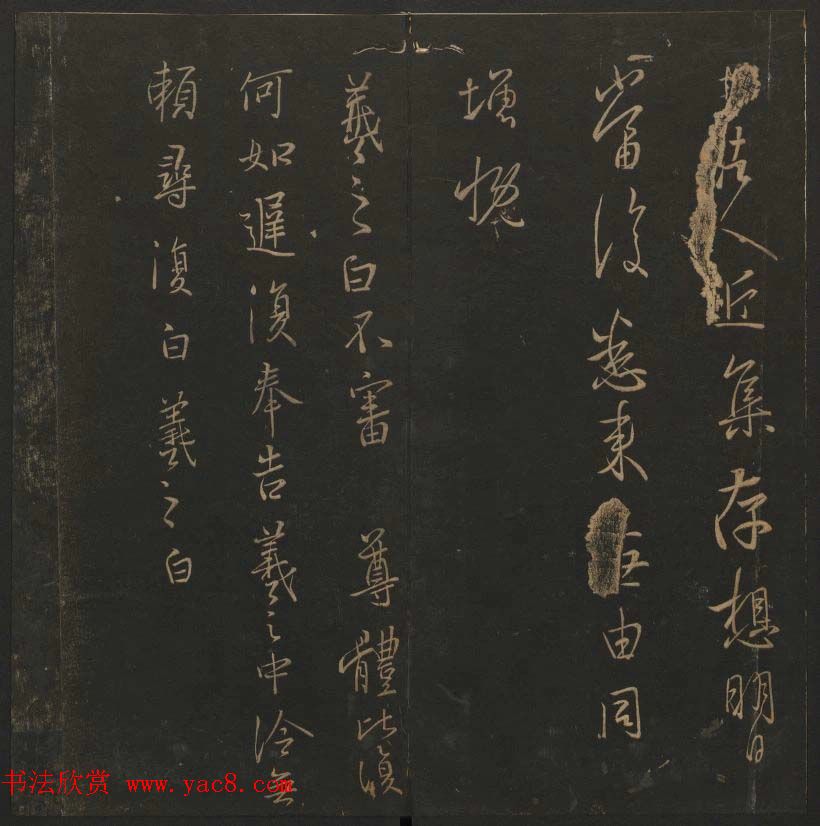 人近集存想明日
當復悉来由同
增慨
羲之白不審 尊體比復
何如遲復奉告羲之中冷無
賴尋復白羲之白
书法欣赏 www.yac8.com